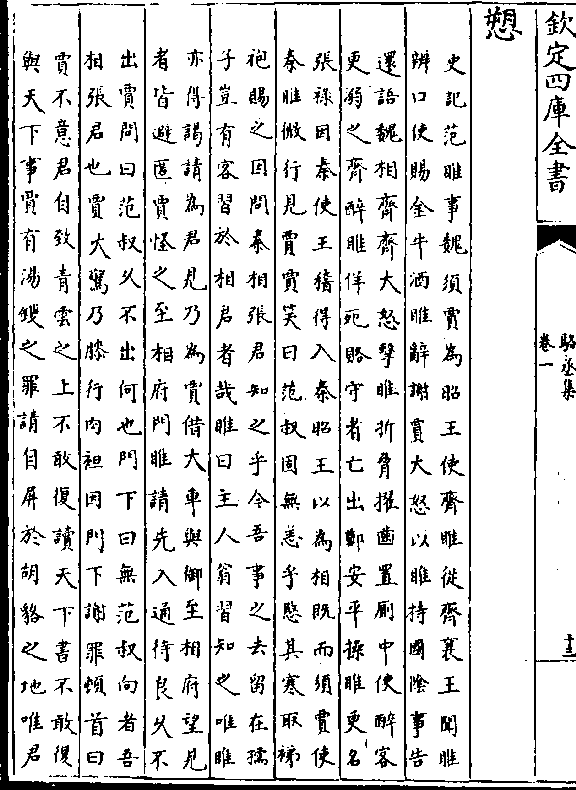 欽定四庫全書
駱丞集
卷一
十三
愬
史記范雎事魏須賈為昭王使齊雎從齊襄王聞雎
辨口使賜金牛酒雎辭謝賈大怒以雎持國陰事告
還語魏相齊齊大怒擊雎折脅摺齒置廁中使醉客
更溺之齊醉雎佯死賂守者亡出鄭安平操雎更名
張祿因秦使王稽得入秦昭王以為相既而須賈使
秦雎微行見賈賈笑曰范叔固無恙乎愍其寒取綈
袍賜之因問秦相張君知之乎今吾事之去留在孺
子豈有客習於相君者哉雎曰主人翁習知之唯雎
亦得謁請為君見乃為賈借大車與御至相府望見
者皆避匿賈怪之至相府門雎請先入通待良久不
出賈問曰范叔久不出何也門下曰無范叔向者吾
相張君也賈大驚乃膝行肉袒因門下謝罪頓首曰
賈不意君自致青雲之上不敢復讀天下書不敢復
與天下事賈有湯鑊之罪請自屏於胡貉之地唯君